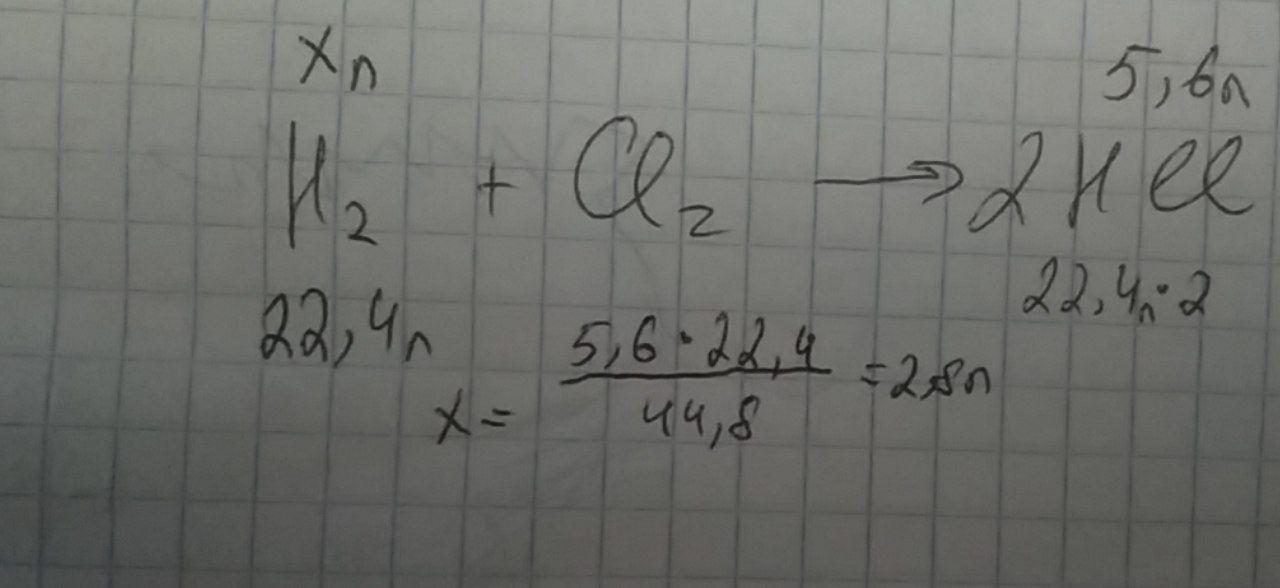 xл 5,6л
H₂ + Cl₂ → 2HCl
22,4л 22,4л·2
x = 5,6·22,4 / 44,8 = 2,8л